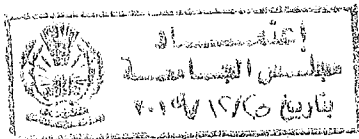 إعتمـــاد
مجلس الجامعة
بتاريخ ٢٠١٩/١٢/٢٥